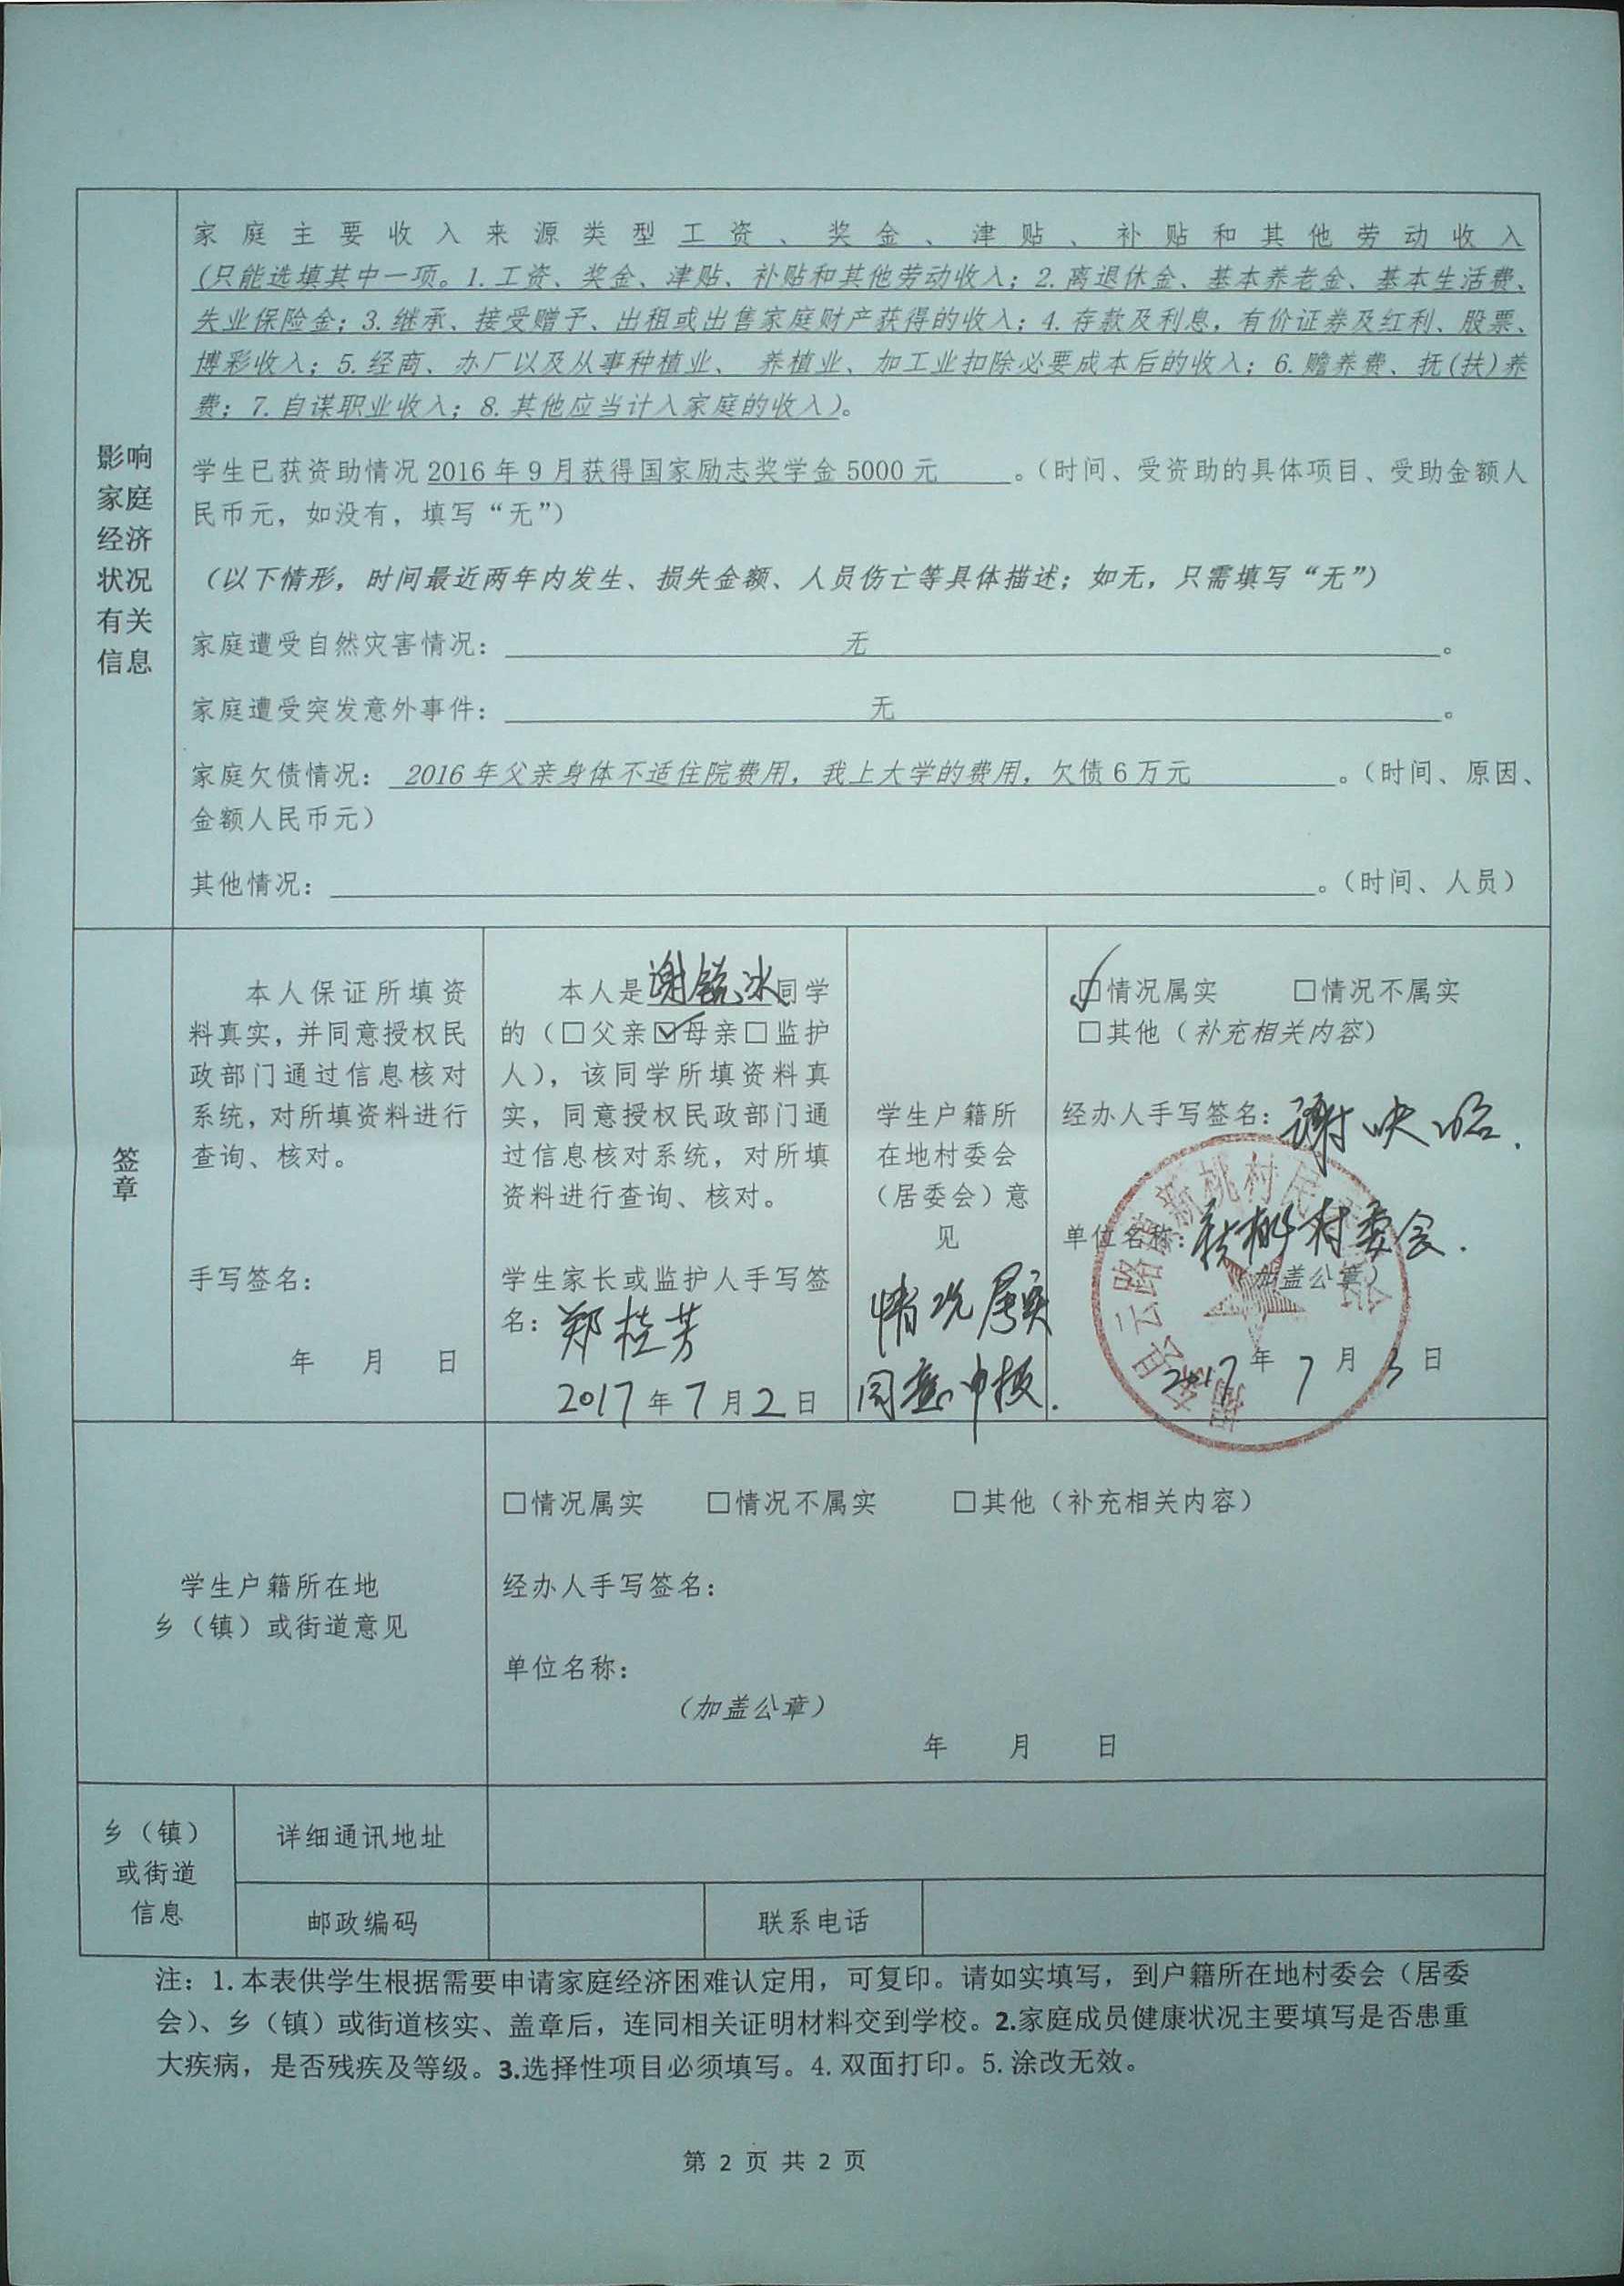 家庭主要收入来源类型工资、奖金、津贴、补贴和其他劳动收入
(只能选填其中一项。1.工资、奖金、津贴、补贴和其他劳动收入；2.离退休金、基本养老金、基本生活费、
失业保险金；3.继承、接受赠予、出租或出售家庭财产获得的收入；4.存款及利息，有价证券及红利、股票、
博彩收入；5.经商、办厂以及从事种植业、 养植业、加工业扣除必要成本后的收入；6.赡养费、抚(扶)养
费；7.自谋职业收入；8.其他应当计入家庭的收入)。
影响
家庭
经济
状况
有关
信息
学生已获资助情况 2016年9月获得国家励志奖学金5000元 。（时间、受资助的具体项目、受助金额人
民币元，如没有，填写“无”）
（以下情形，时间最近两年内发生、损失金额、人员伤亡等具体描述；如无，只需填写“无”）
家庭遭受自然灾害情况： 无 。
家庭遭受突发意外事件： 无 。
家庭欠债情况： 2016年父亲身体不适住院费用，我上大学的费用，欠债6万元 。（时间、原因、
金额人民币元）
其他情况： 。（时间、人员）
签
章
本人保证所填资
料真实，并同意授权民
政部门通过信息核对
系统，对所填资料进行
查询、核对。
手写签名：
年 月 日
本人是谢锐冰同学
的（□父亲☑母亲□监护
人），该同学所填资料真
实，同意授权民政部门通
过信息核对系统，对所填
资料进行查询、核对。
学生家长或监护人手写签
名：郑桂芳
2017年7月2日
学生户籍所
在地村委会
（居委会）意
见
情况属实
同意申报.
☑情况属实 □情况不属实
□其他（补充相关内容）
经办人手写签名：谢
单位名称：新桃村委会.
（加盖公章）
2017年7月3日
云路镇新桃村民
学生户籍所在地
乡（镇）或街道意见
□情况属实 □情况不属实 □其他（补充相关内容）
经办人手写签名：
单位名称：
（加盖公章）
年 月 日
乡（镇）
或街道
信息
详细通讯地址
邮政编码
联系电话
注：1.本表供学生根据需要申请家庭经济困难认定用，可复印。请如实填写，到户籍所在地村委会（居委
会）、乡（镇）或街道核实、盖章后，连同相关证明材料交到学校。2.家庭成员健康状况主要填写是否患重
大疾病，是否残疾及等级。3.选择性项目必须填写。4.双面打印。5.涂改无效。
第 2 页 共 2 页